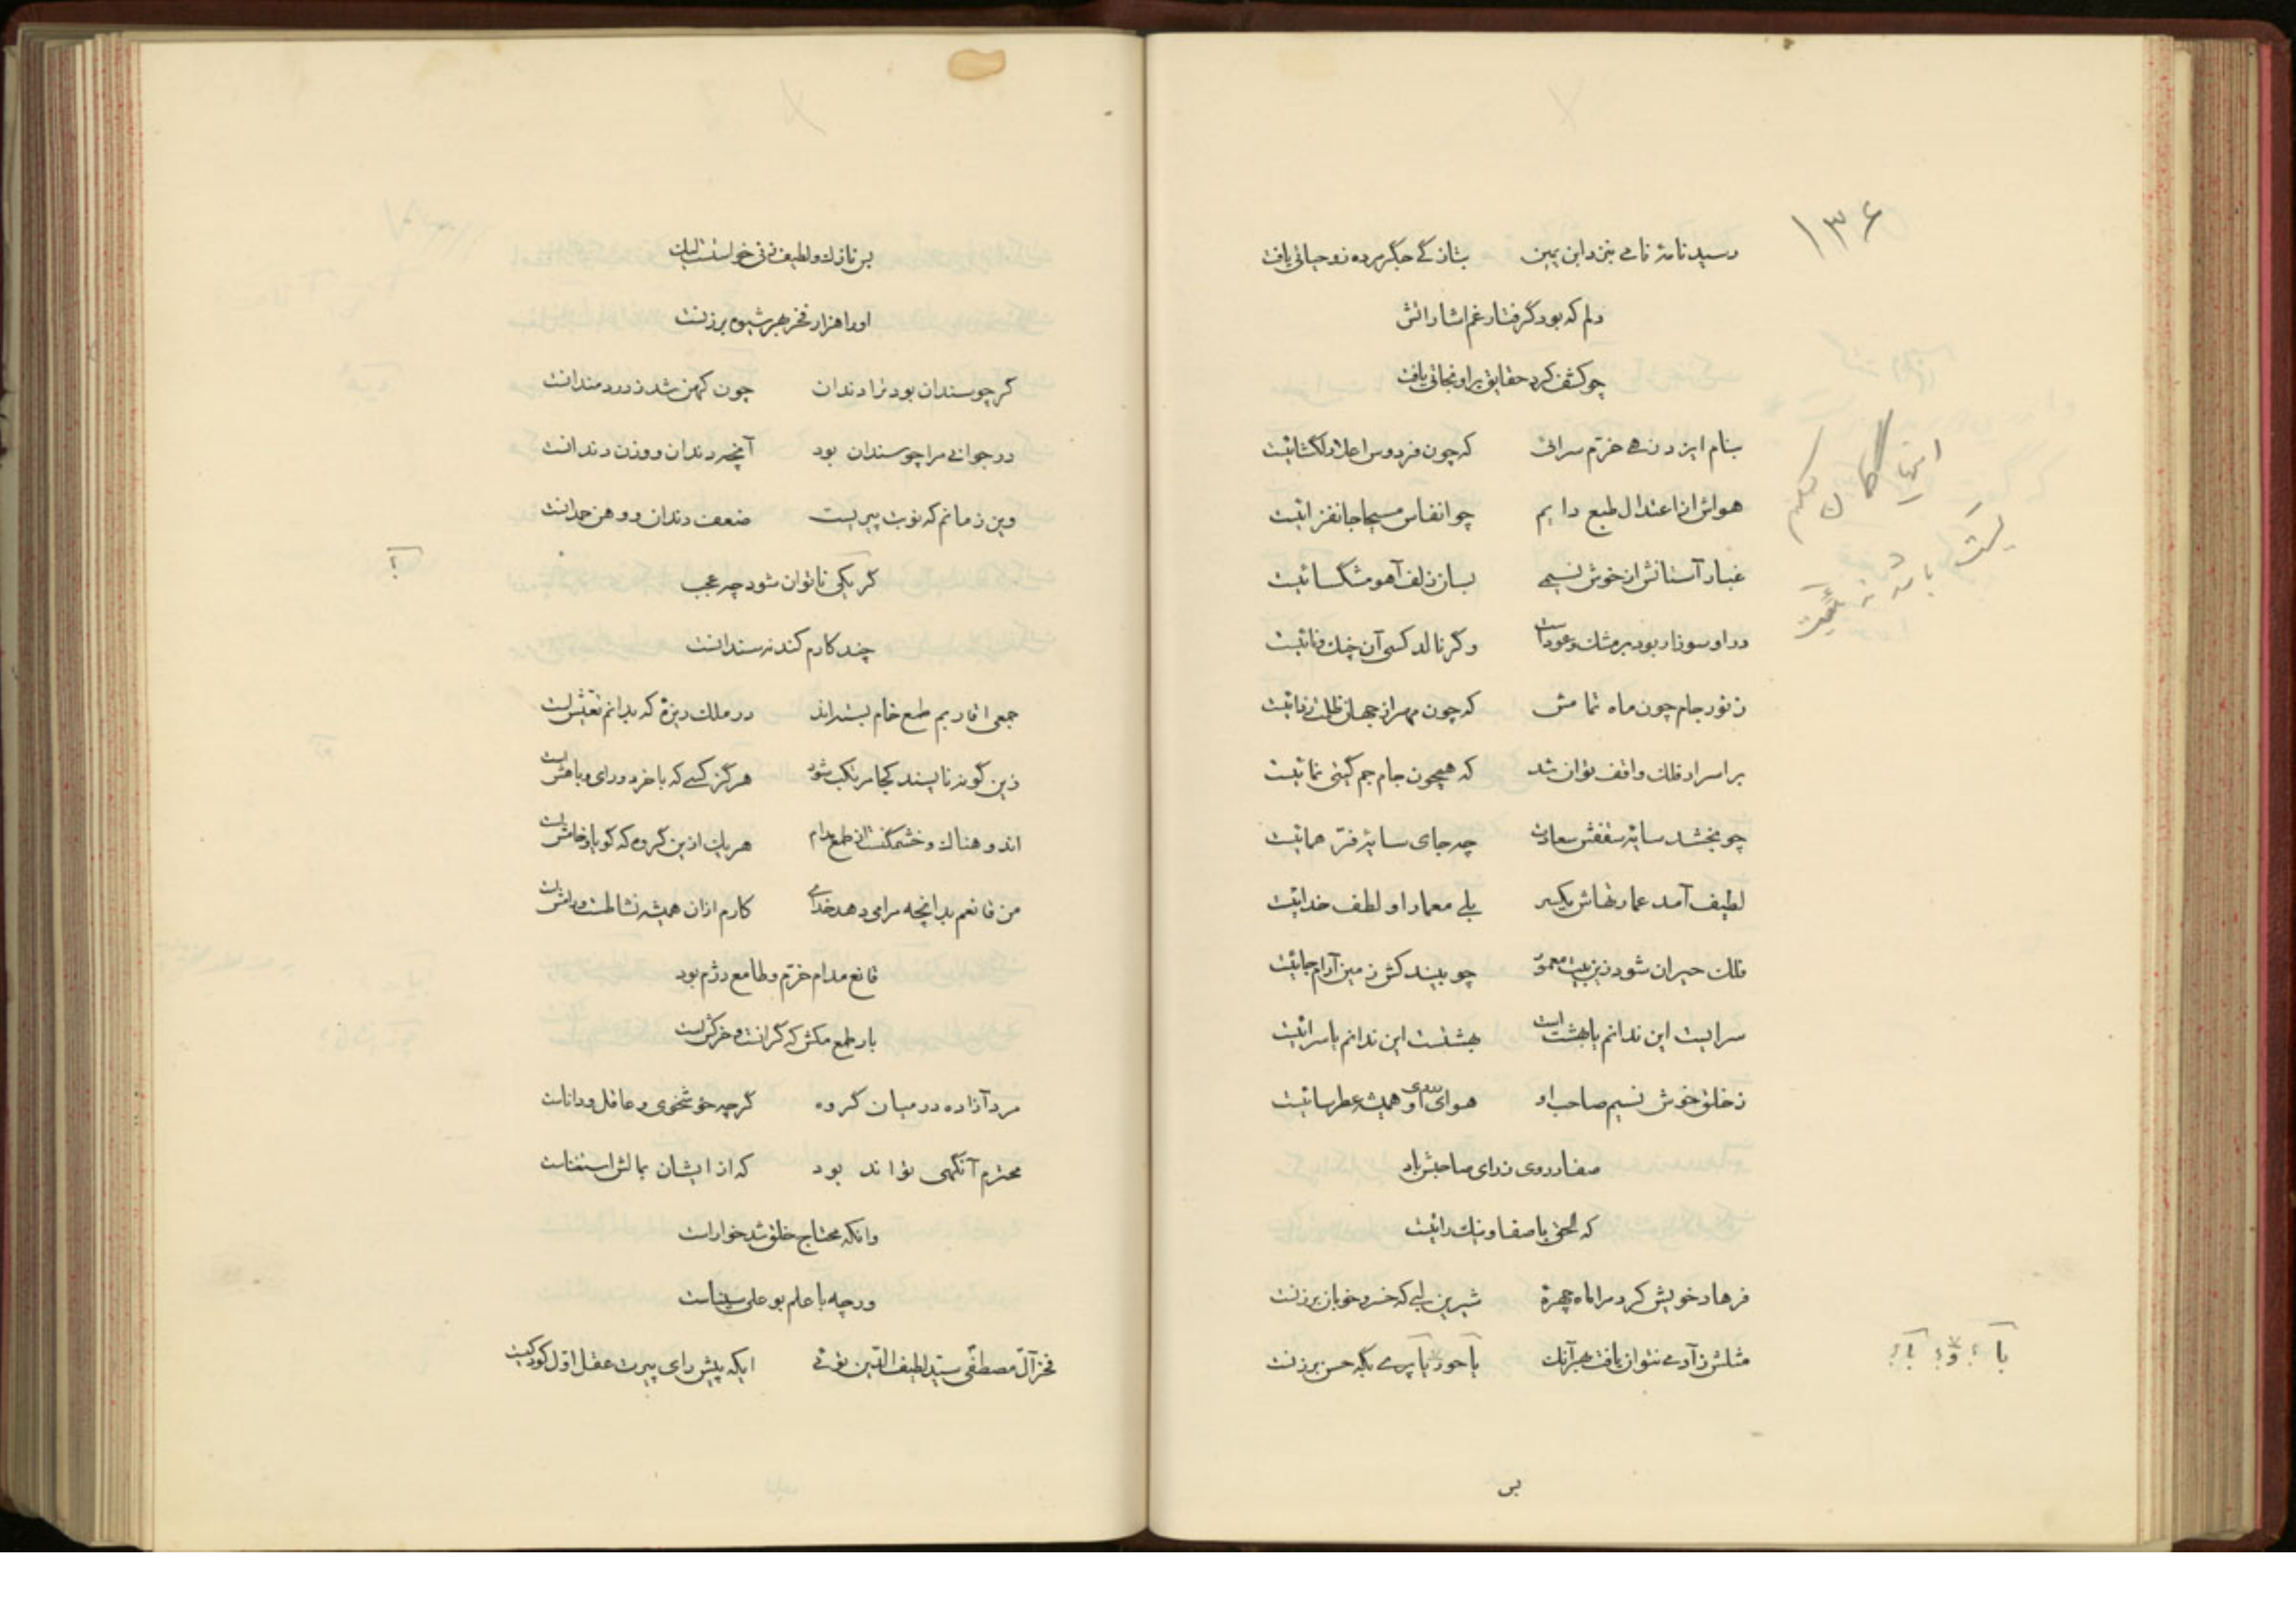 ۱۳۶
رسید نامهٔ نامی بنزد ابن یمین بتازگی جگر مرده زو حیاتی یافت
دلم که بود گرفتار غم اشاراتش
چو کشف کرد حقایق برو نجاتی یافت
بنام ایزد زهی خرّم سرائی که چون فردوس اعلا دلگشائیست
هواش از اعتدال طبع دایم چو انفاس مسیحا جانفزائیست
غبار آستانش از خوش نسیمی بسان زلف آهو مشگسائیست
در او سوزار بود بر مشک و عود است وگر نالد کسی آن چنگ و نائیست
ز نور جام چون ماه تمامش که چون مهر از جهان ظلمت زدائیست
بر اسرار فلک واقف توان شد که همچون جام جم گیتی نمائیست
چو بخشد سایهٔ سقفش سعادت چه جای سایهٔ فرّ همائیست
لطیف آمد عمارتهاش یکسر بلی معمار او لطف خدائیست
فلک حیران شود زین بیت معمور چو بیند کش زمین آرام جائیست
سرایست این ندانم یا بهشت است بهشتست این ندانم یا سرائیست
ز خلق خوش نسیم صاحب او هوای او همیشه عطرسائیست
صفا در روی و رای صاحبش باد
که الحق با صفا و نیک رائیست
فرهاد خویش کرد مرا ماه چهرهٔ شیرین لبی که خسرو خوبان برزنست
مثلش ز آدمی نتوان یافت بهر آنک یا حور یا پری بگه حسن برزنست
بس
بس نازک و لطیف
او را هزار فخر بهر شیوه بر زنست
گر چو سندان بود ترا دندان چون کهن شد ز دردمندانست
در جوانی مرا چو سندان بود آنچه دندان و وزن دندانست
وین زمانم که نوبت پیریست ضعف دندان و وهن حدانست
گر یکی ناتوان شود چه عجب
چند کارم کند نه سندانست
؟
جمعی اقاربم طمع خام بسته‌اند در ملک ریزهٔ که بدانم تعیّش است
زین گونه ناپسند کجا مرتکب شود هرگز کسی که با خرد و رای و با هش است
اندوهناک و خشمگنست از طمع مدام هر یک ازین گروه که گویا و خامش است
من قانعم بدانچه مرا می دهد خدای کارم ازان همیشه نشاطست و رامش است
قانع مدام خرّم و طامع دژم بود
بار طمع مکش که گرانست و خرکش است
مرد آزاده در میان گروه گرچه خوشخوی و عاقل و داناست
محترم آنگهی تواند بود که از ایشان بمالش استغناست
وانکه محتاج خلق شد خوار است
ورچه با علم بوعلی سیناست
فخر آل مصطفی سیّد لطیف الدّین توئی ایکه پیش رای پیرت عقل اوّل کودکیست